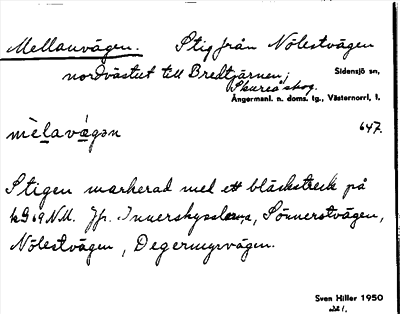 Mellanvägen. Stig från Nölestvägen
nordvästut till Bredtjärnen;
Skureå skog.
Sidensjö sn,
Ångermanl. n. doms. tg., Västernorrl. l.
647.
mèlavágən
Stigen markerad med ett bläckstreck på
kB 69 NM. Jfr. Sönnerstvägen,
Nölestvägen, Degermyrvägen.
Sven Hiller 1950